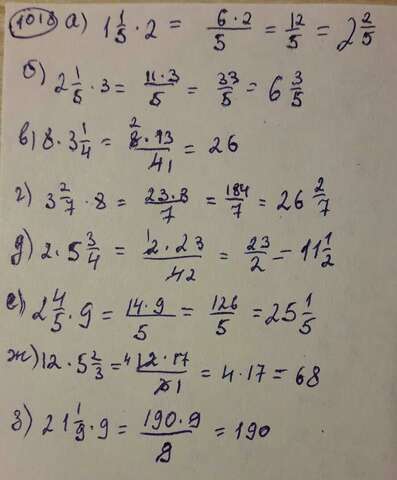 1018 а) 1 1/5 · 2 = 6·2/5 = 12/5 = 2 2/5
б) 2 1/5 · 3 = 11·3/5 = 33/5 = 6 3/5
в) 8 · 3 1/4 = 2 8·13/4 1 = 26
г) 3 2/7 · 8 = 23·8/7 = 184/7 = 26 2/7
д) 2 · 5 3/4 = 1 2·23/4 2 = 23/2 = 11 1/2
е) 2 4/5 · 9 = 14·9/5 = 126/5 = 25 1/5
ж) 12 · 5 2/3 = 4 12·17/3 1 = 4·17 = 68
з) 21 1/9 · 9 = 190·9/9 = 190